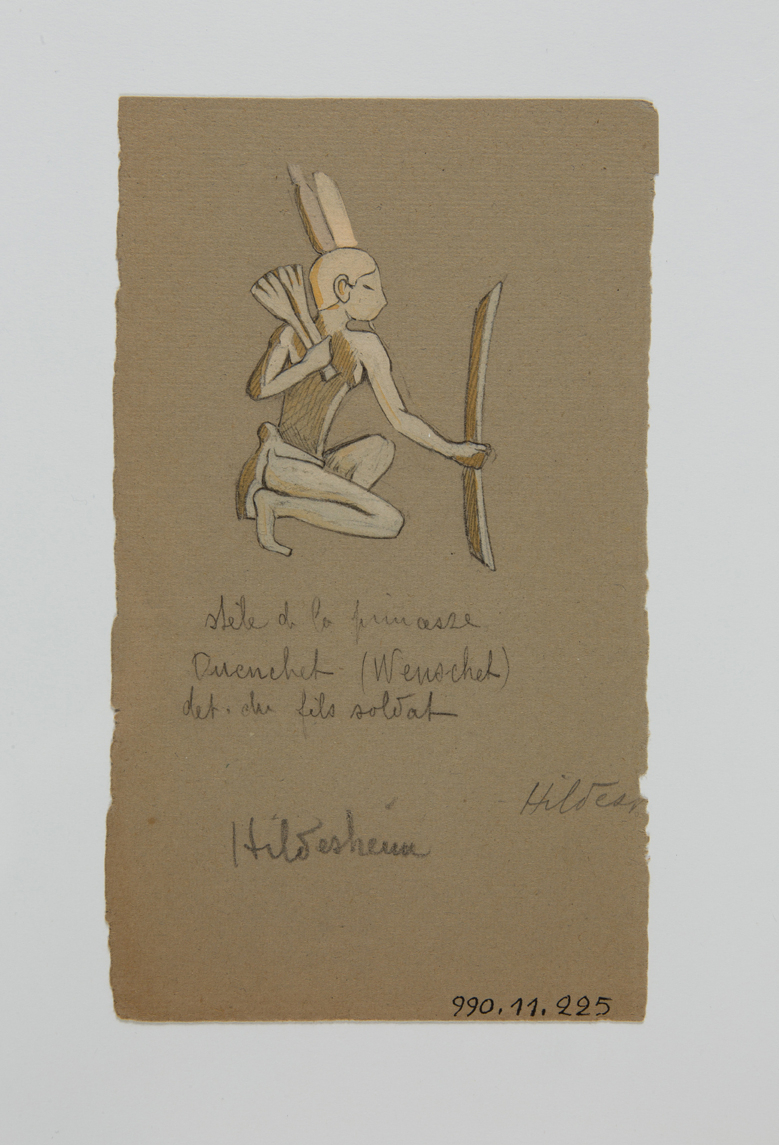 stèle de la princesse
Ouenchet (Wenschet)
det. du fils soldat
Hildes
Hildesheim
990.11.225